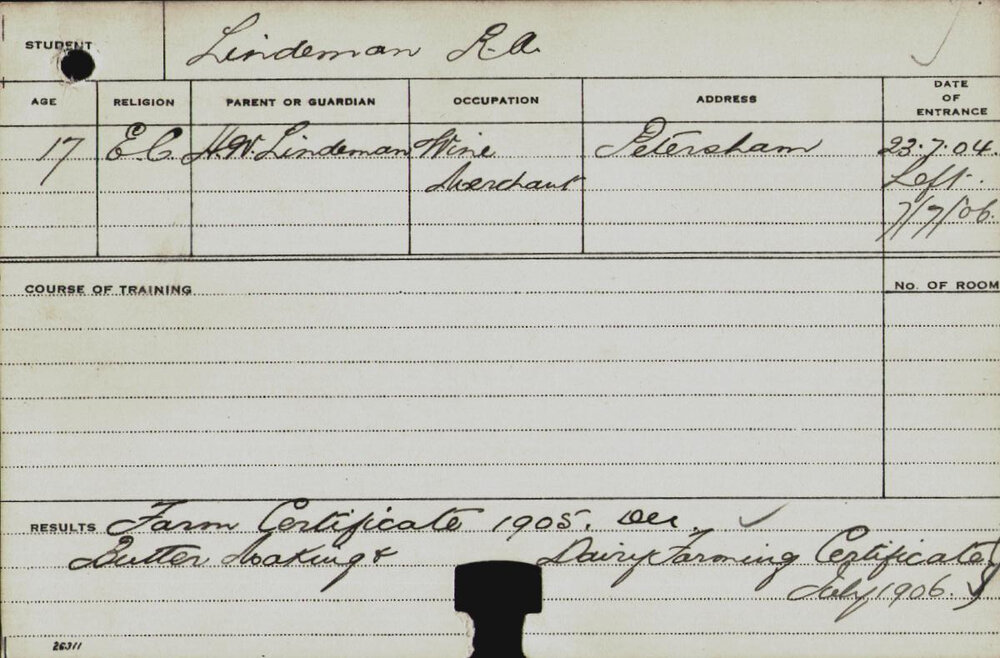 STUDENT Lindeman R.A.
AGE RELIGION PARENT OR GUARDIAN OCCUPATION ADDRESS DATE OF ENTRANCE
17 E.C. H.W. Lindeman Wine Petersham 23.7.04.
Merchant Left.
7/7/06.
COURSE OF TRAINING No. OF ROOM
RESULTS Farm Certificate 1905. Dec.
Butter Making & Dairy Farming Certificates
July 1906.
26311